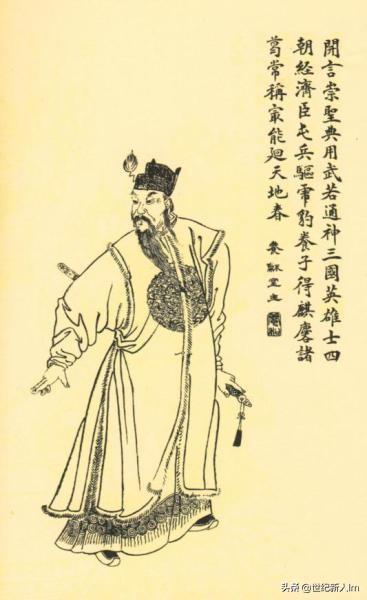 開言崇聖典用武若通神三國英雄士四
朝經濟臣屯兵驅虎豹養子得麒麐諸
葛常稱㝡能廻天地春
头条 @世纪新人lrn